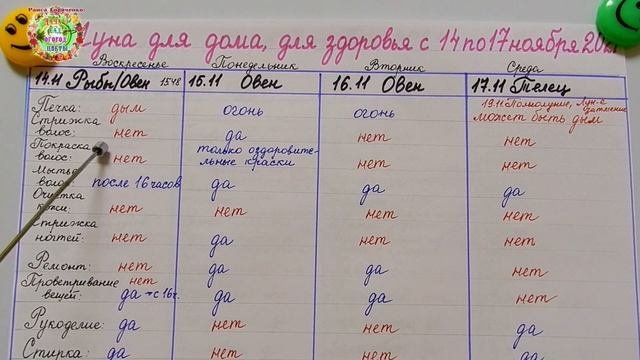 Раиса Горяченко
САД
ОГОРОД
ЦВЕТЫ
Луна для дома, для здоровья с 14 по 17 ноября 202
Воскресенье Понедельник Вторник Среда
14.11 Рыбы/Овен 15 48 15.11 Овен 16.11 Овен 17.11 Телец
Печка: дым огонь огонь 19.11 Полнолуние, Лун-е затмение
может быть дым
Стрижка
волос: нет да нет нет
Покраска только оздоровите-
волос: нет льные краски нет нет
Мытьё
волос: после 16 часов да да да
Очистка
кожи: нет нет нет нет
Стрижка
ногтей: нет да нет нет
Ремонт: нет да да нет
Проветривание нет
вещей: да → с 16ч. да да нет
Рукоделие: да нет нет да
Стирка: да нет нет да